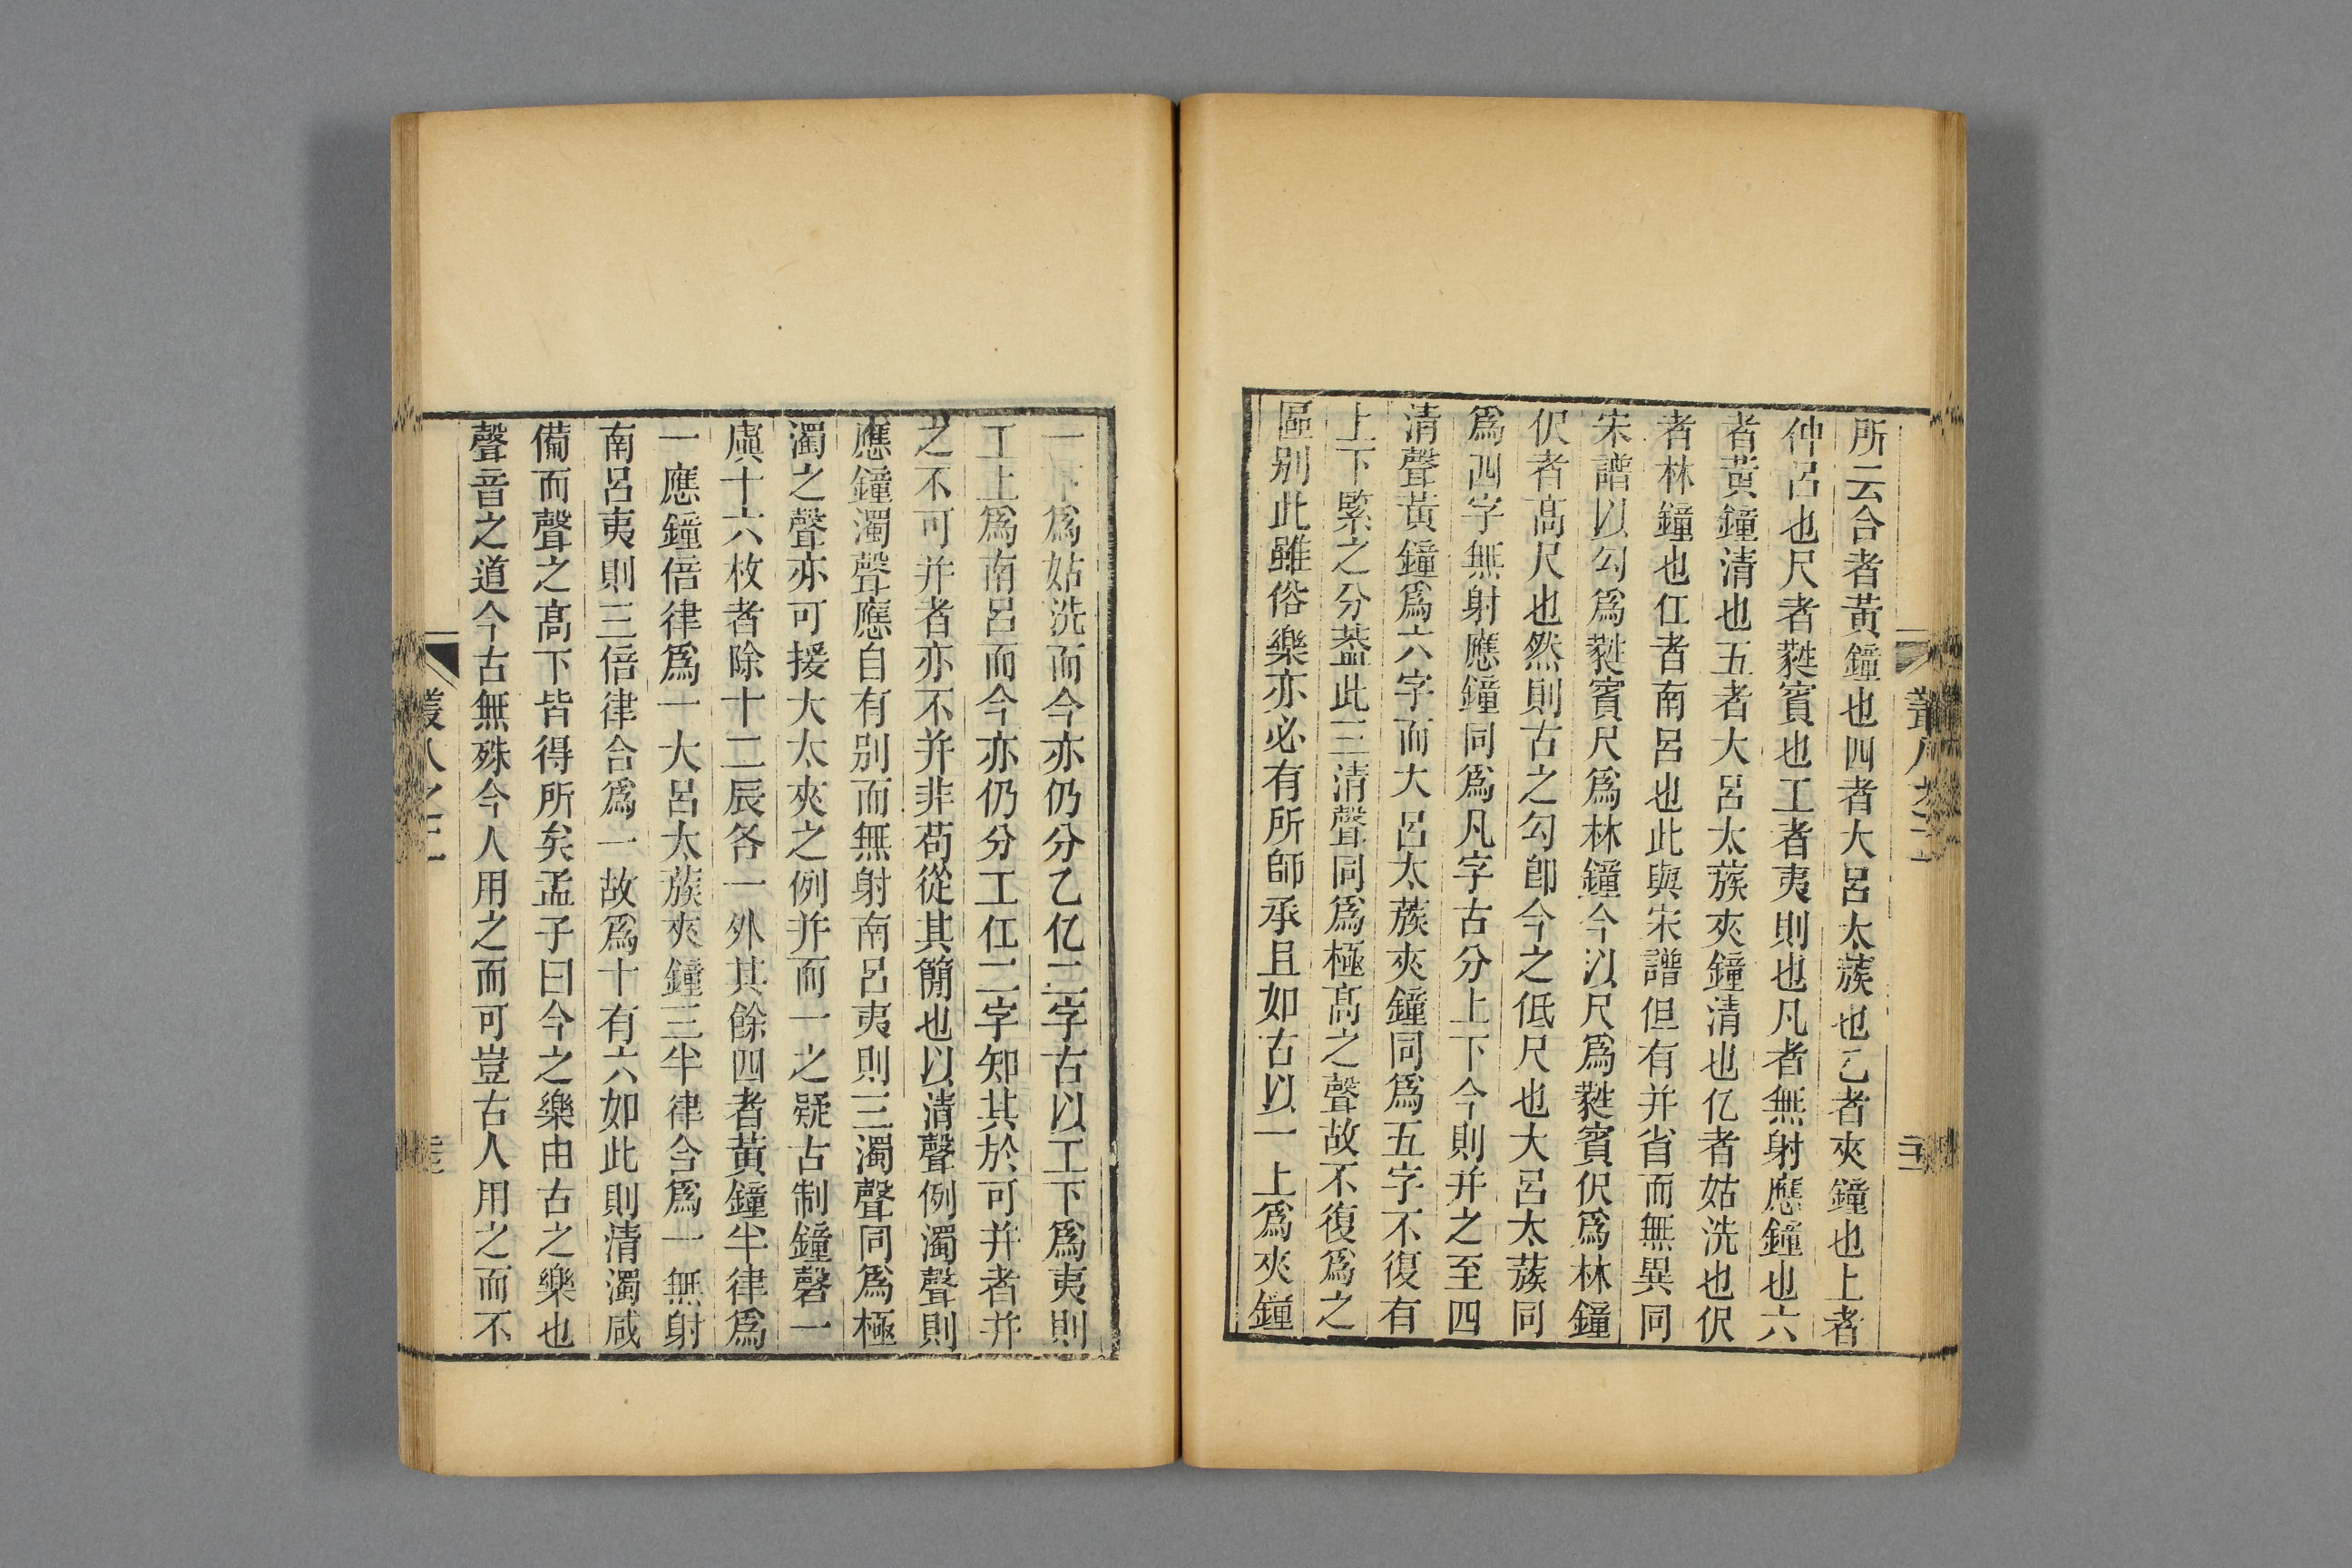 所云合者黃鐘也四者大呂太蔟也乙者夾鐘也上者
仲呂也尺者蕤賓也工者夷則也凡者無射應鐘也六
者黃鐘清也五者大呂太蔟夾鐘清也亿者姑洗也伬
者林鐘也仜者南呂也此與宋譜但有并省而無異同
宋譜以勾爲蕤賓尺爲林鐘今以尺爲蕤賓伬爲林鐘
伬者高尺也然則古之勾卽今之低尺也大呂太蔟同
爲四字無射應鐘同爲凡字古分上下今則并之至四
清聲黃鐘爲六字而大呂太蔟夾鐘同爲五字不復有
上下緊之分葢此三清聲同爲極高之聲故不復爲之
區別此雖俗樂亦必有所師承且如古以一上爲夾鐘
一下爲姑洗而今亦仍分乙亿二字古以工下爲夷則
工上爲南呂而今亦仍分工仜二字知其於可并者并
之不可并者亦不并非苟從其簡也以清聲例濁聲則
應鐘濁聲應自有別而無射南呂夷則三濁聲同爲極
濁之聲亦可援大太夾之例并而一之疑古制鐘磬一
虡十六枚者除十二辰各一外其餘四者黃鐘半律爲
一應鐘倍律爲一大呂太蔟夾鐘三半律合爲一無射
南呂夷則三倍律合爲一故爲十有六如此則清濁咸
備而聲之高下皆得所矣孟子曰今之樂由古之樂也
聲音之道今古無殊今人用之而可豈古人用之而不